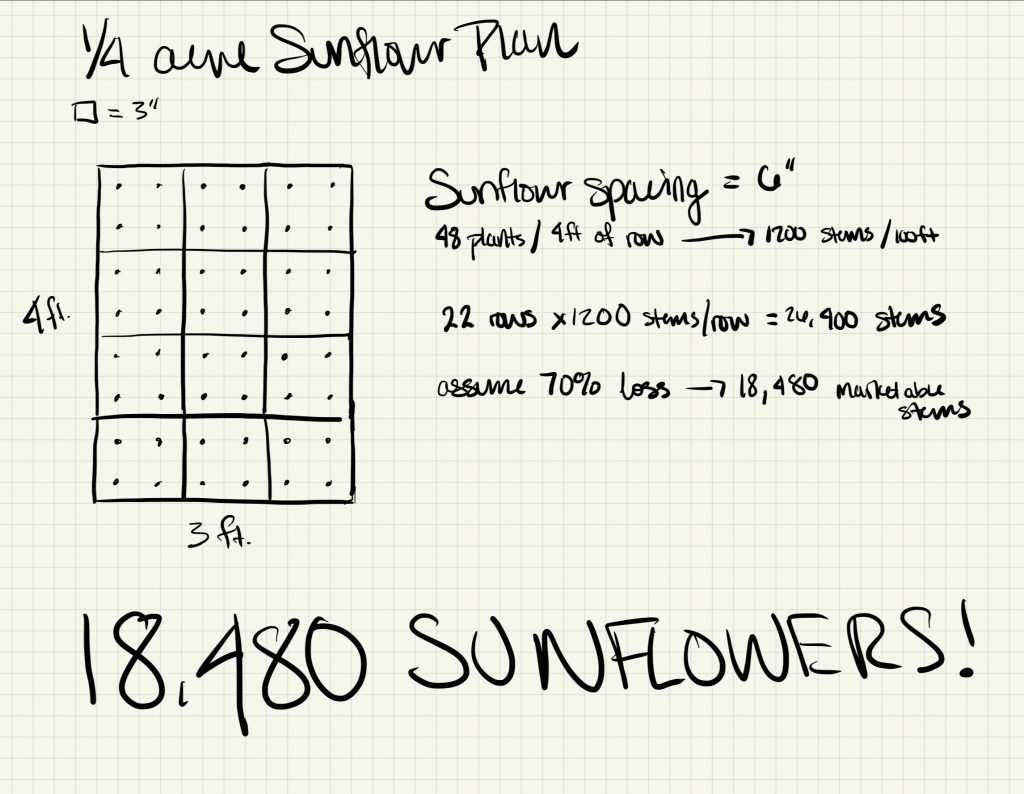 1/4 acre Sunflour Plan
□ = 3"
Sunflour spacing = 6"
48 plants / 4ft of row → 1200 stems/100ft
4ft.
22 rows x1200 stems/row = 26,400 stems
assume 70% loss → 18,480 marketable
stems
3 ft.
18,480 SUNFLOWERS!